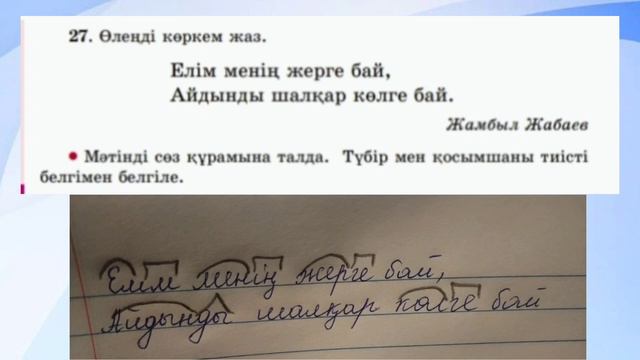 27. Өлеңді көркем жаз.
Елім менің жерге бай,
Айдынды шалқар көлге бай.
Жамбыл Жабаев
• Мәтінді сөз құрамына талда. Түбір мен қосымшаны тиісті
белгімен белгіле.
Елім менің жерге бай,
Айдынды шалқар көлге бай